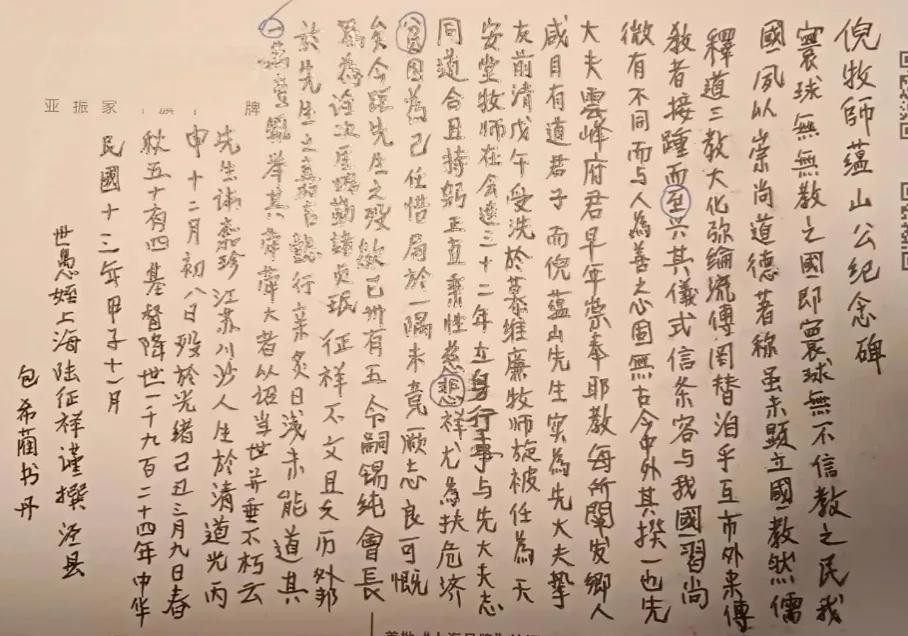 倪牧師蘊山公紀念碑
寰球無無教之國即寰球無不信教之民我
國夙以崇尚道德著称虽未顯立國教然儒
釋道三教大化弥綸流傳罔替洎乎互市外来傳
教者接踵而至兴其儀式信条容与我國習尚
微有不同而与人為善之心固無古今中外其揆一也先
大夫雲峰府君早年崇奉耶教每所闡发鄉人
咸目有道君子而倪蘊山先生实為先大夫摯
友前清戊午受洗於慕維廉牧師旋被任為天
安堂牧師在会逾三十二年立身行事与先大夫志
同道合且持躬正直秉性慈悲祥尤為扶危济
貧困為己任惜局於一隅未竟厥志良可慨
矣今距先生之殁歘已卅有五令嗣锡纯會長
為諉次崖略勒諸贞珉征祥不文且久历外邦
於先生之嘉言懿行亲炙日浅未能道其
一為豊举其犖犖大者以诏当世并垂不朽云
先生諱蘊珍江苏川沙人生於清道光丙
申十二月初八日殁於光绪己丑三月九日春
秋五十有四基督降世一千九百二十四年中华
民國十三年甲子十一月
世愚姪上海陆征祥谨撰泾县
包希蔺书丹
亚振家 旗 牌